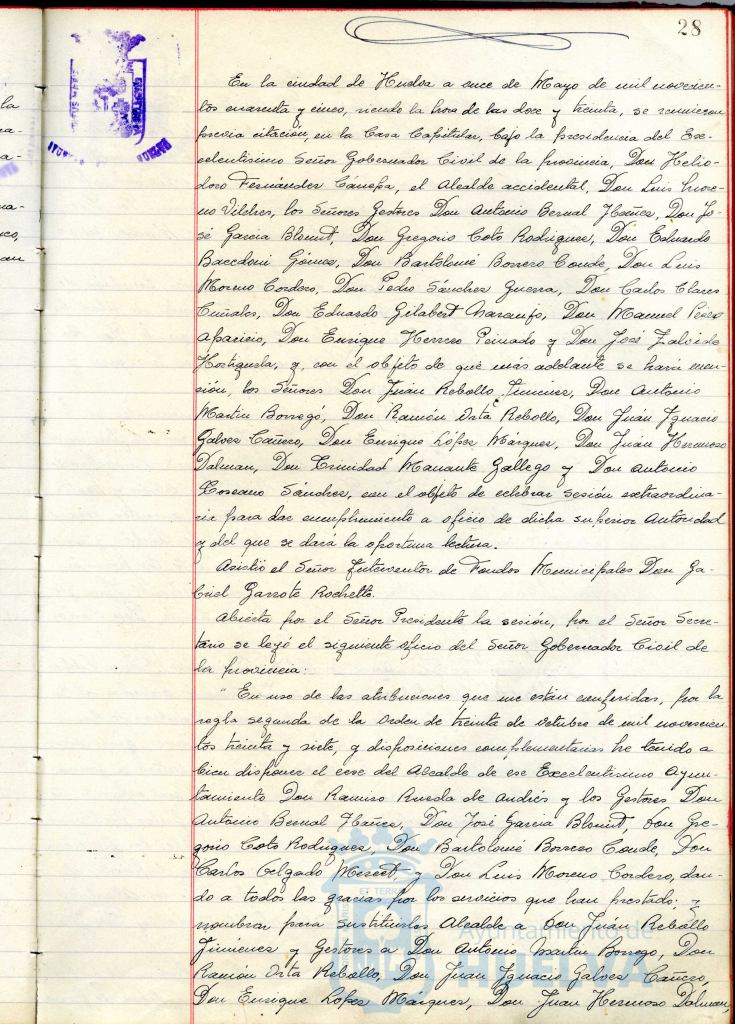 28
En la ciudad de Huelva a once de Mayo de mil novecien-
tos cuarenta y cinco, siendo la hora de las doce y treinta, se reunieron
previa citación, en la Casa Capitular, bajo la presidencia del Ex-
celentisimo Señor Gobernador Civil de la provincia, Don Helio-
doro Fernández Cánepa, el Alcalde accidental, Don Luis More-
no Vilches, los Señores Gestores Don Antonio Bernal Ibañez, Don Jo-
sé Garcia Blount, Don Gregorio Coto Rodriguez, Don Eduardo
Gómez, Don Bartolomé Borrero Conde, Don Luis
Moreno Cordero, Don Pedro Sánchez Guerra, Don Carlos Clares
Don Eduardo Gilabert Naranjo, Don Manuel Pérez
Aparicio, Don Enrique Herrero Peinado y Don José
y, con el objeto de que más adelante se hará men-
sión, los Señores Don Juán Rebollo Jimenez, Don Antonio
Martin Borrego, Don Ramón Orta Rebollo, Don Juán Ignacio
Galvez Cañero, Don Enrique López Márquez, Don Juán Hermoso
Dalman, Don Trinidad Gallego y Don Antonio
Toscano Sánchez, con el objeto de celebrar sesión extraordina-
ria para dar cumplimiento a oficio de dicha superior Autoridad
y del que se dará la oportuna lectura.
Asistió el Señor Interventor de Fondos Municipales Don Ga-
briel Garrote
Abierta por el Señor Presidente la sesión, por el Señor Secre-
tario se leyó el siguiente oficio del Señor Gobernador Civil de
la provincia:
"En uso de las atribuciones que me están conferidas, por la
regla segunda de la Orden de treinta de octubre de mil novecien-
tos treinta y siete, y disposiciones complementarias he tenido a
bien disponer el cese del Alcalde de ese Excelentisimo Ayun-
tamiento Don Ramiro Rueda de Andrés y los Gestores, Don
Antonio Bernal Ibañez, Don José Garcia Blount, Don Gre-
gorio Coto Rodriguez, Don Bartolomé Borrero Conde, Don
Carlos y Don Luis Moreno Cordero, dan-
do a todos las gracias por los servicios que han prestado; y
nombrar para sustituirlos Alcalde a Don Juán Rebollo
Jimenez y Gestores a Don Antonio Martin Borrego, Don
Ramon Orta Rebollo, Don Juan Ignacio Galvez Cañero,
Don Enrique López Marquez, Don Juan Hermoso Dalman,
Ayuntamiento de
HUELVA